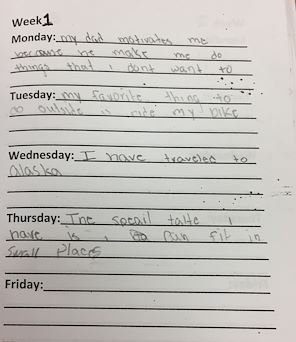 Week 1
Monday: my dad motivates me
because he make me do
things that i dont want to
Tuesday: my favorite thing to
do outside is ride my bike
Wednesday: I have traveled to
alaska
Thursday: The specail talte I
have is i can fit in
small places
Friday: